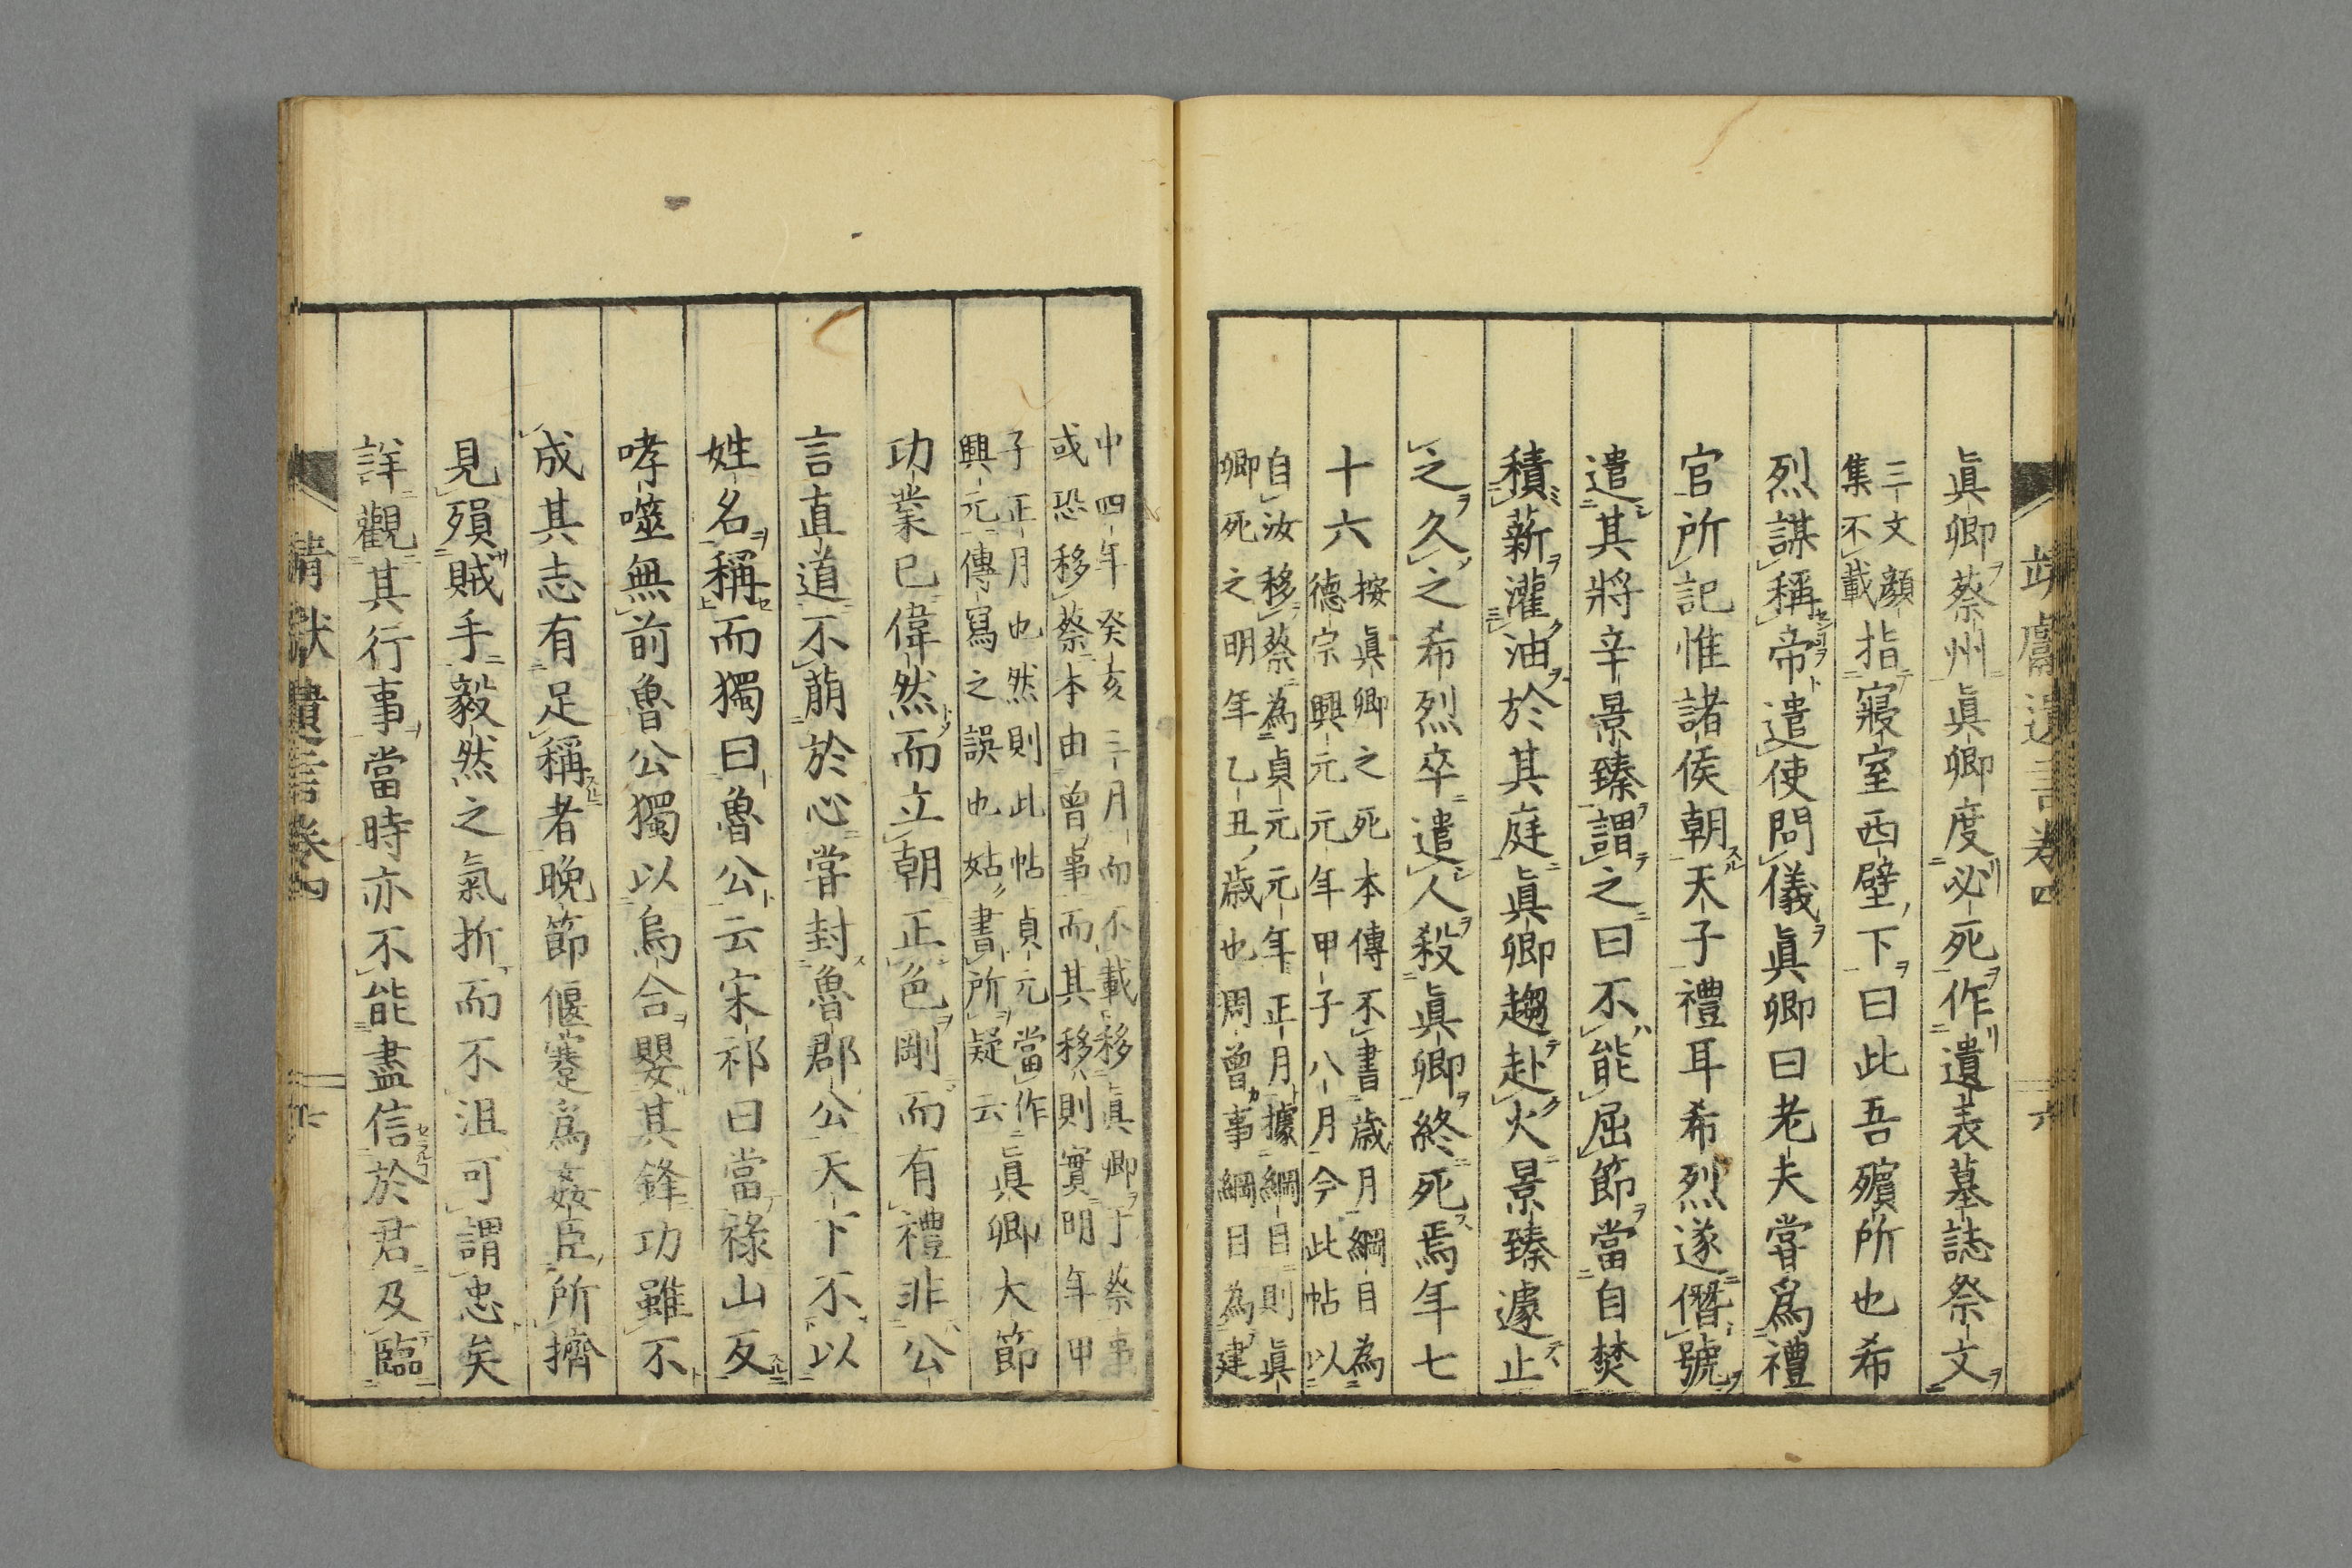 靖獻遺言卷四
六
眞卿蔡州眞卿度必死作遺表墓誌祭文
三文顏
集不載指寢室西壁下曰此吾殯所也希
烈謀稱帝遣使問儀眞卿曰老夫嘗爲禮
官所記惟諸侯朝天子禮耳希烈遂僭號
遣其將辛景臻謂之曰不能屈節當自焚
積薪灌油於其庭眞卿趨赴火景臻遽止
之久之希烈卒遣人殺眞卿終死焉年七
十六
按眞卿之死本傳不書歲月綱目為
德宗興元元年甲子八月今此帖以
自汝移蔡為貞元元年正月據綱目則眞
卿死之明年乙丑歲也周曾事綱目為建
中四年癸亥三月而不載移眞卿于蔡事
或恐移蔡本由曾事而其移則實明年甲
子正月也然則此帖貞元當作
興元傳寫之誤也姑書所疑云
眞卿大節
功業已偉然而立朝正色剛而有禮非公
言直道不萠於心嘗封魯郡公天下不以
姓名稱而獨曰魯公云宋祁曰當祿山反
哮噬無前魯公獨以烏合嬰其鋒功雖不
成其志有足稱者晚節偃蹇爲姦臣所擠
見殞賊手毅然之氣折而不沮可謂忠矣
詳觀其行事當時亦不能盡信於君及臨
靖獻遺言卷四